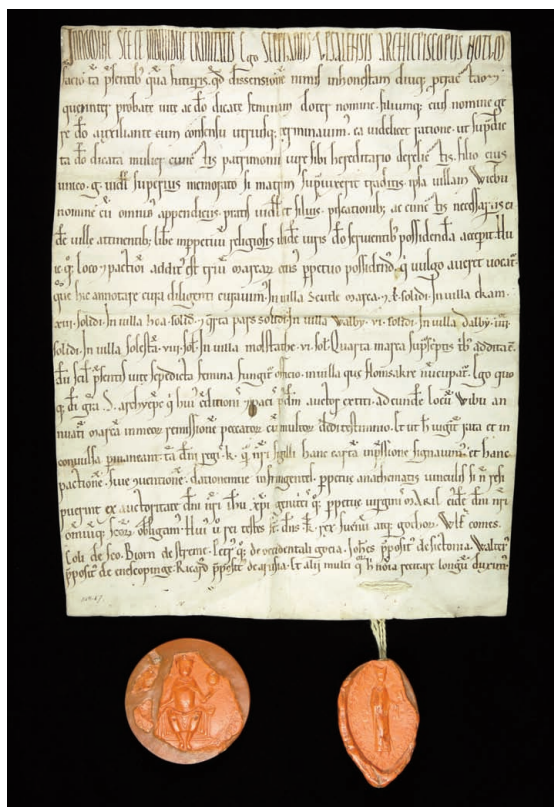 IN NOMINE SCE ET INDIVIDUE TRINITATIS Ego STEPHANUS UPSALENSIS ARCHIEPISCOPUS NOTUM
facio tā p̄sentib; quā futuris. qđ dissensionē nimis inhonestam diuq;
probate uite ac dō dicate feminam doter nomine. filiumq; eius nomine ge
re dō auxiliante eum consensu utriusq; terminauim. ea uidelicet ratione. ut sup̄dic
ta dō dicata mulier patrimonii iure sibi hereditario derelic filio eius
unico. g. superius memorato si matrem supuixerit traditis. ipsa uillam Viebu
nomine cū omnib; appendiciis. pratis uidl et siluis. piscationib; ac necessariis ei
dē uille attinentib; libe inppetuum religiosis ibidē uiris dō seruientib; possidendā accepit. Hui
c q; loco paction addita est triū marcar census ppetuo possidend. q̄ uulgo aueret uocat.
quē hic annotare cura diligenti curauim. In uilla Scutle marca. 7. solidi. In uilla ekam.
xiii. solidi. In uilla hea. solid. 7 q̄rta pars solidi. In uilla walby. vi. solidi. In uilla dalby. iiii.
solidi. In uilla solesta. viii. sol. In uilla molstathe. vi. sol. Quarta marca sup̄scriptis tb addita.
dum p̄sentis uite sepedicta femina fungit officio. in uilla que flomsakre nuncupat. Ego quo
q; di gra. S. archiep̄c q̄ hui editioni 7 paci p̄dm auctor extiti. ad eundē locū Wibu an
nuatī marcā in meor remissionē peccator cū multor dedi testimonio. Et ut h̄ iugit rata et in
conuulsa pmaneant. tā dn̄i regis. k. q̄ nr̄i sigilli hanc cartā inp̄ssione signauim. et hanc
pactionē. siue uentionē. dationemue infringentes. ppetue anathematis uinculis si n̄ resi
puerint ex auctoritate dn̄i nr̄i ihu. xp̄i. genitricis q; ppetue uirginis MARIE eidē dn̄i nr̄i
omniuq; scor. obligam. Hui u rei testes s. dn̄s. k. rex sueuor atq; gothor. Wlf comes.
Coli de sco. Biorn de strenie. Petr q; de occidentali gocia. Johes p̄posit de sictonia. Walter
p̄posit de endcopinge. Ricard p̄posit de arusia. Et alii multi q̄ h̄ nota recitare longū duxim